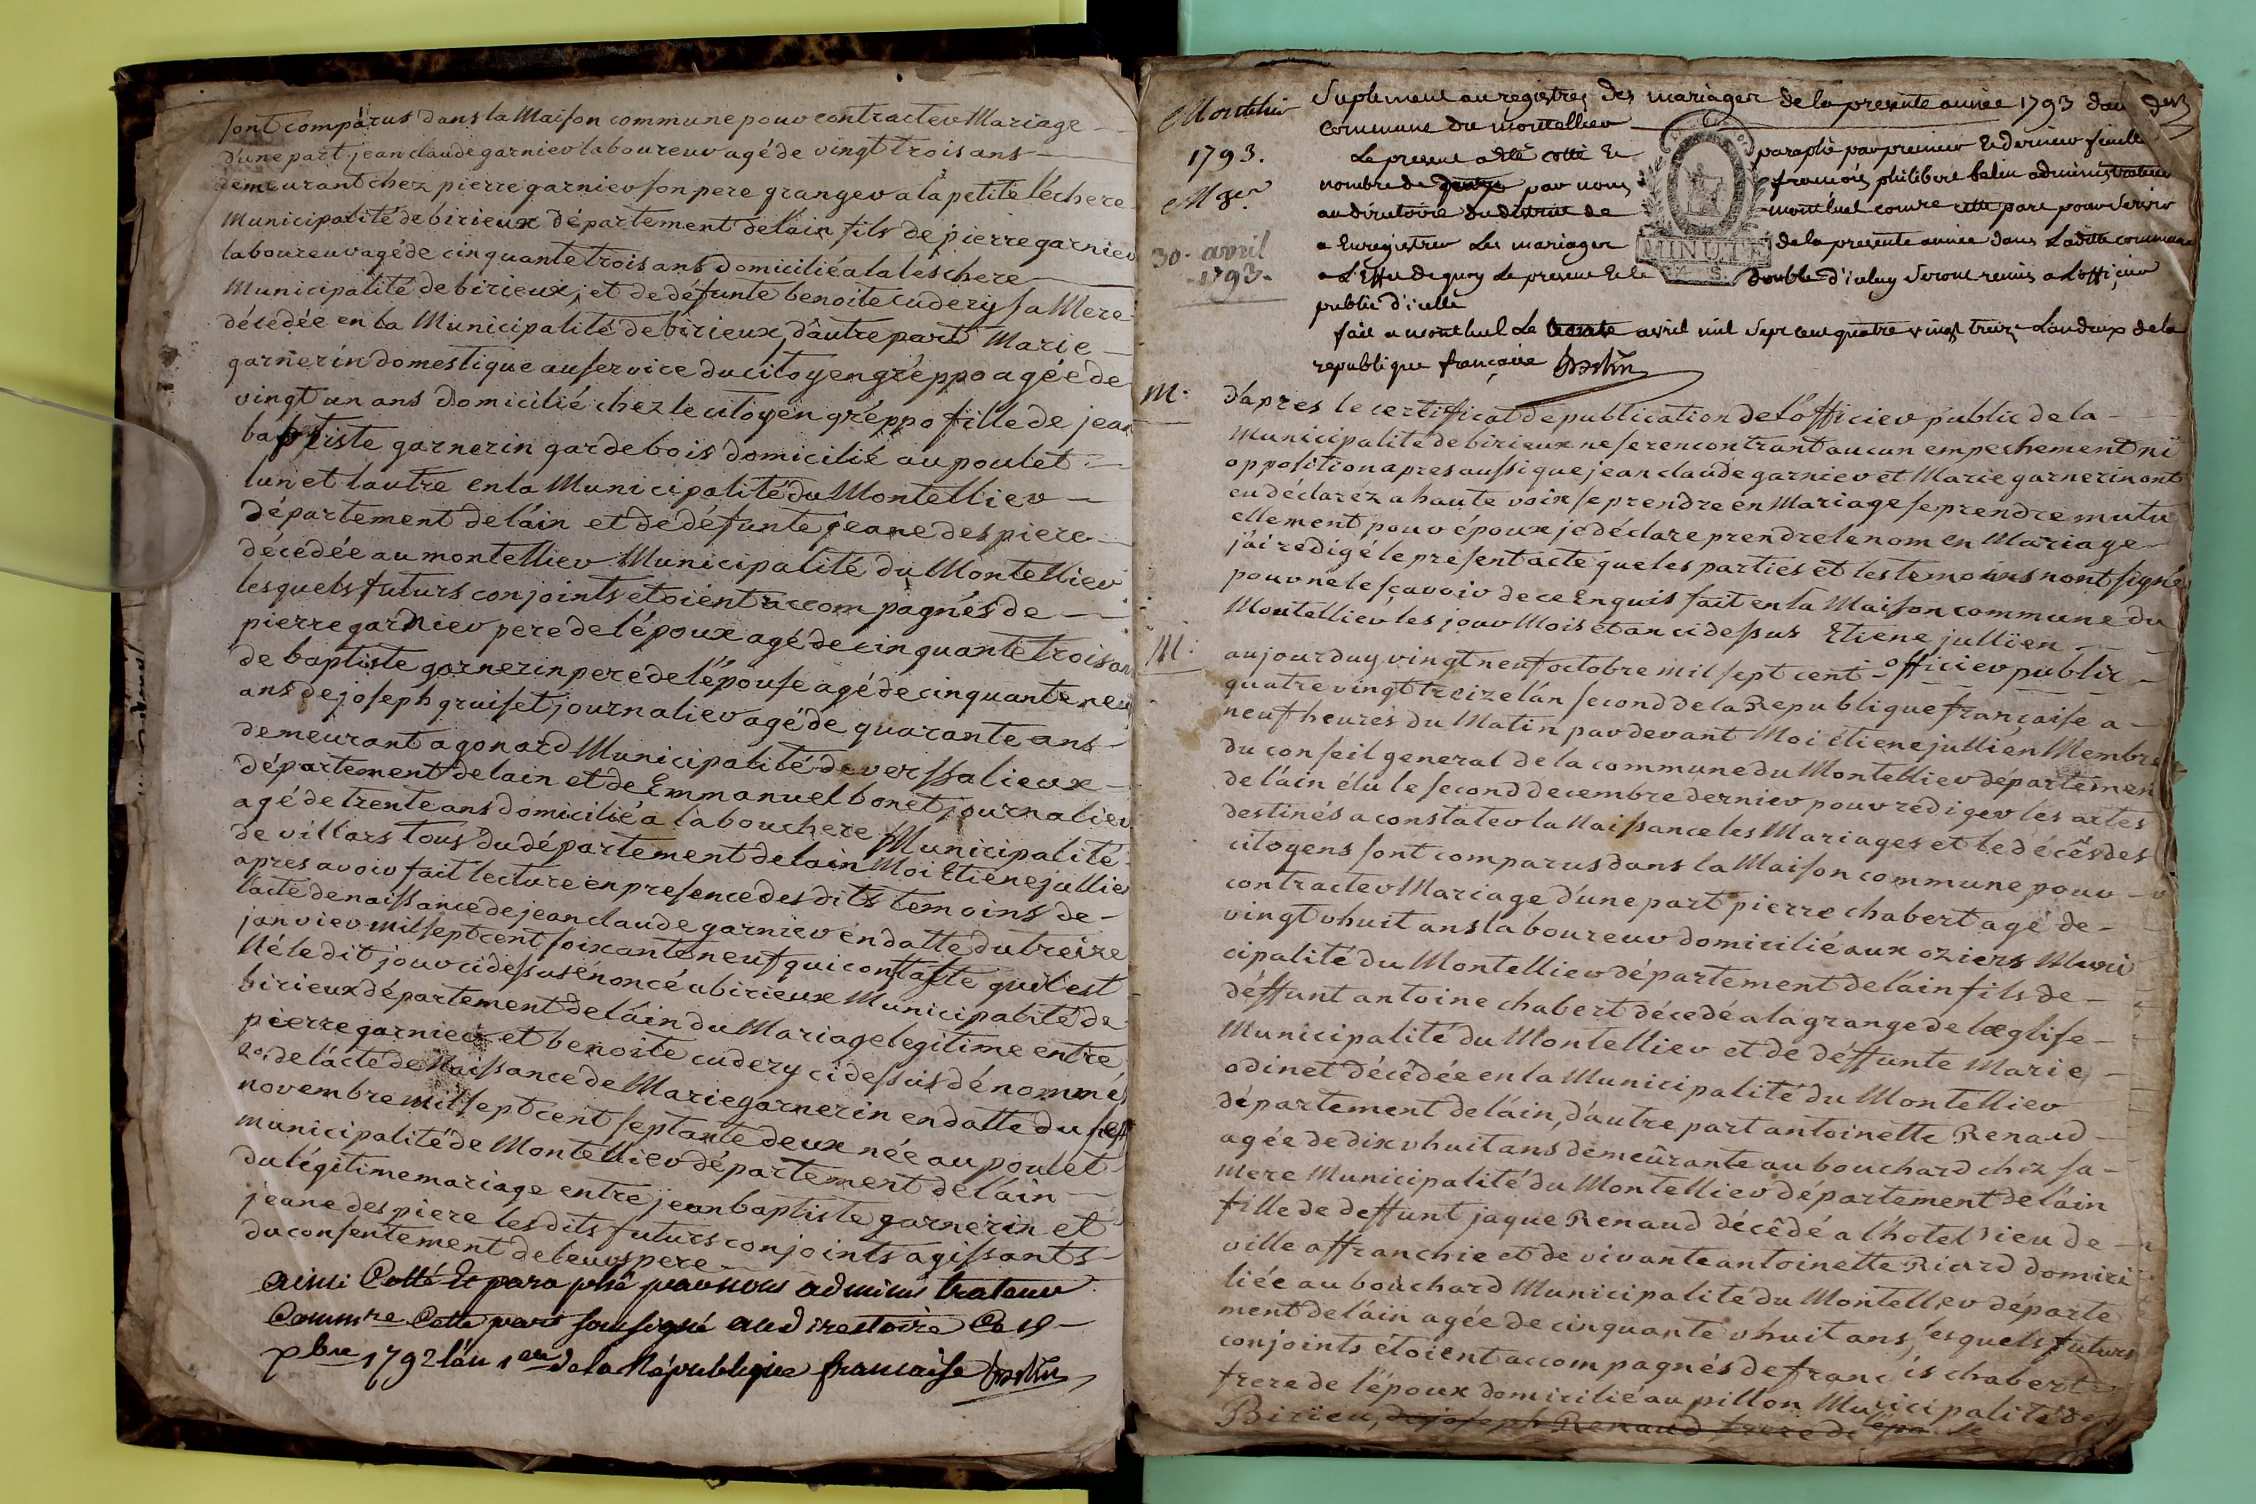 sont comparus dans la Maison commune pour contracter Mariage
d'une part jean claude garnier laboureur agé de vingt trois ans
demeurant chez pierre garnier son pere granger a la petite léchere
Municipalité de birieux département de láin fils de pierre garnier
laboureur agé de cinquante trois ans domicilié a la léschere
Municipalité de birieux, et de défunte benoite cudery sa Mere
décédée en la Municipalité de birieux, d'autre part Marie
garnerin domestique au service du citoyen gréppo agée de
vingt un ans domicilié chez le citoyen gréppo fille de jean
baptiste garnerin garde bois domicilié au poulet
lun et lautre en la Municipalité du Montellier
département de láin et de défunte jeane despiere
décédée au montellier Municipalité du Montellier
lesquels futurs conjoints etoient accompagnés de
pierre garnier pere de l'époux agé de cinquante trois ans
de baptiste garnerin pere de l'épouse agé de cinquante neuf
ans de joseph gruiset journalier agé de quarante ans
demeurant a gonard Municipalité de verssalieux
département de lain et de Emmanuel bonet journalier
agé de trente ans domicilié a la bouchere Municipalité
de villars tous du département de lain Moi Etiene jullien
apres avoir fait lecture en presence des dits temoins de
lacte de naissance de jean claude garnier en datte du treize
janvier mil sept cent soixante neuf qui constate quil est
Né le dit jour ci dessus énoncé a birieux Municipalité de
birieux département de láin du Mariage legitime entre
pierre garnier et benoite cudery ci dessus dénommés
2o. de lácte de Naissance de Marie garnerin en datte du sept
novembre mil sept cent septante deux née au poulet
municipalité de Montellier département de láin
du légitime mariage entre jean baptiste garnerin et
jeane despiere les dits futurs conjoints agissants
du consentement de leurs pere
ainsi Cotté Et paraphé par nous administrateur
Comm.re Cette part soussigné au directoire Ce 19
xbre 1792 lán 1er de la République francaise Belin
Montelier
1793.
Mge.
30. avril
1793.
Suplement au registres des mariages de la presente année 1793 dans
Commune du montellier
Le present a été cotté Et paraphé par premier Et dernier feuille
nombre de par nous françois philibert belin administrateur
au directoire du district de montluel comre cette part pour Servir
a Enregistrer Les mariages de la presente année dans Laditte commune
a L'Effet de quoy Le present Et le double d'iceluy Seront remis a L'officier
public d'icelle
MINUTE
fait a montluel Le trente avril mil Sept cent quatre vingt treize Lan deux de la
republique françoise Belin
M.
dápres le certificat de publication de l'officier public de la
Municipalité de birieux ne se rencontrant aucun empechement ni
opposition apres aussi que jean claude garnier et Marie garnerin ont
eu déclaréz a haute voix se prendre en Mariage se prendre mutu
ellement pour époux je déclare prendre le nom en Mariage
j'ai redigé le présent acte que les parties et les temoins nont signé
pour ne le sçavoir de ce Enquis fait en la Maison commune du
Montellier les jour Mois et an ci dessus Etiene jullien
officier public
M.
aujourduy vingt neuf octobre mil sept cent
quatre vingt treize lán second de la Republique française a
neuf heures du Matin par devant Moi étiene jullien Membre
du conseil general de la commune du Montellier département
de láin élu le second decembre dernier pour rédiger les actes
destinés a constater la Naissance les Mariages et le décês des
citoyens sont comparus dans la Maison commune pour
contracter Mariage d'une part pierre chabert agé de
vingt vhuit ans laboureur domicilié aux oziers Muni
cipalité du Montellier département de láin fils de
déffunt antoine chabert décedé a la grange de lœglise
Municipalité du Montellier et de déffunte Marie
odinet décêdée en la Municipalité du Montellier
département de láin, d'autre part antoinette Renaud
agée de dix vhuit ans demeûrante au bouchard chez sa
mere Municipalité du Montellier département de láin
fille de deffunt jaque Renaud décêdé a lhotel dieu de
ville affranchie et de vivante antoinette Riard domici
liée au bouchard Municipalité du Montellier départe
ment de láin agée de cinquante vhuit ans, lesquels futurs
conjoints étoient accompagnés de francois chabert
frere de l'époux domicilié au pillon Municipalité de
Birieu, de joseph Renaud frere de lépouse